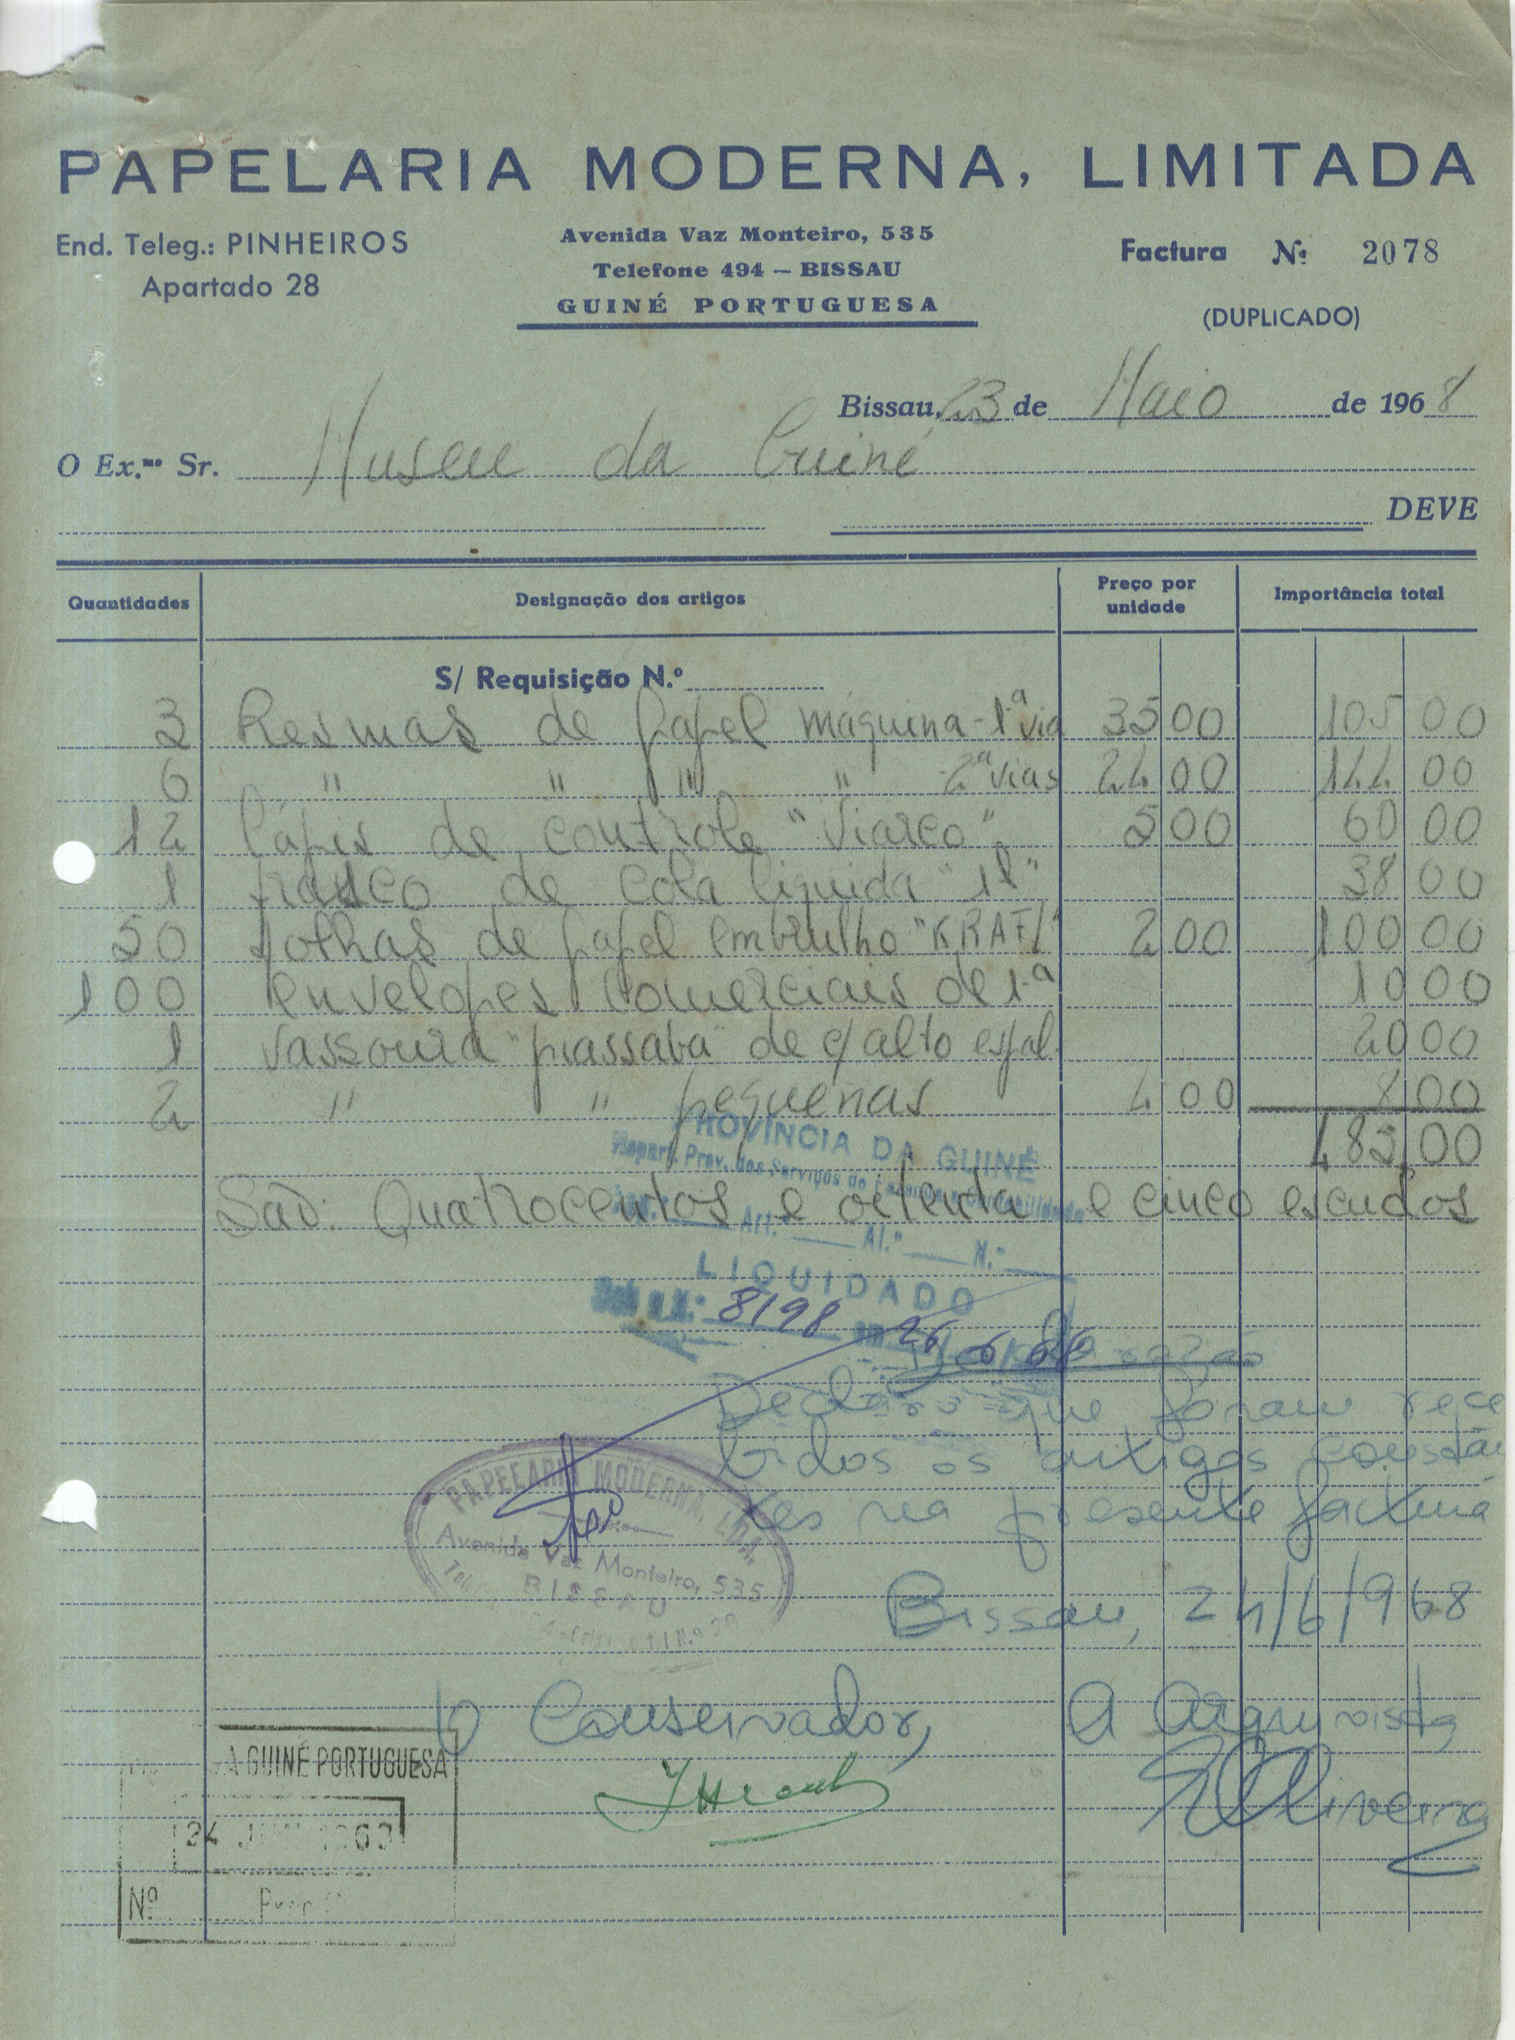 PAPELARIA MODERNA, LIMITADA
End. Teleg.: PINHEIROS
Apartado 28
Avenida Vaz Monteiro, 535
Telefone 494 — BISSAU
GUINÉ PORTUGUESA
Factura Nº 2078
(DUPLICADO)
Bissau, 23 de Maio de 1968
O Ex.mo Sr. Museu da Guiné
DEVE
Quantidades Designação dos artigos Preço por unidade Importância total
S/ Requisição N.º
3 Resmas de papel máquina - 1ª via 35 00 105 00
6 " " " " 2ª vias 24 00 144 00
12 lápis de controle "Viarco" 5 00 60 00
1 frasco de cola liquida "1l" 38 00
50 folhas de papel embrulho "KRAFT" 2 00 100 00
100 envelopes comerciais de 1.ª 10 00
1 vassoura "piassaba" de c/ alto espl. 20 00
2 " " pequenas 4 00 8 00
485,00
São: Quatrocentos e oitenta e cinco escudos
PROVINCIA DA GUINÉ
Repart. Prov. dos Serviços de
Art.º Al.º N.º
LIQUIDADO
8198 26 6 68
Declaração
Declaro que foram rece
bidos os artigos constan
tes na presente factura
PAPELARIA MODERNA, LDA.
Avenida Vaz Monteiro, 535
BISSAU
Bissau, 24/6/968
O Conservador,
A Arquivista
EOliveira
A GUINÉ PORTUGUESA
24 JUN 196
Nº